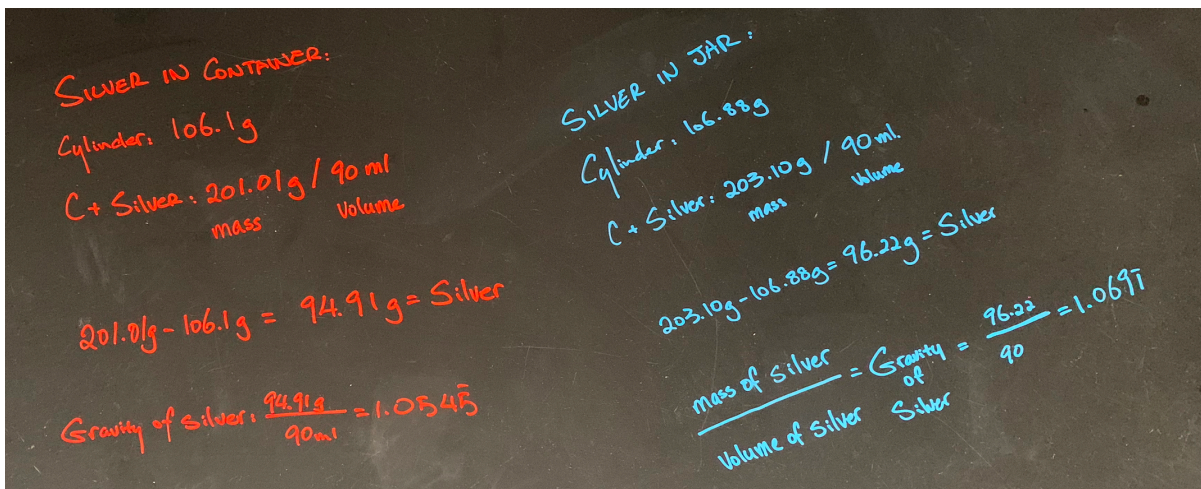 SILVER IN CONTAINER:
Cylinder: 106.1g
C + Silver: 201.01g / 90 ml
mass Volume
201.01g - 106.1g = 94.91g = Silver
Gravity of Silver: 94.91g / 90ml = 1.0545̄
SILVER IN JAR:
Cylinder: 106.88g
C + Silver: 203.10g / 90 ml.
mass Volume
203.10g - 106.88g = 96.22g = Silver
mass of Silver / Volume of Silver = Gravity of Silver = 96.22 / 90 = 1.0691̄